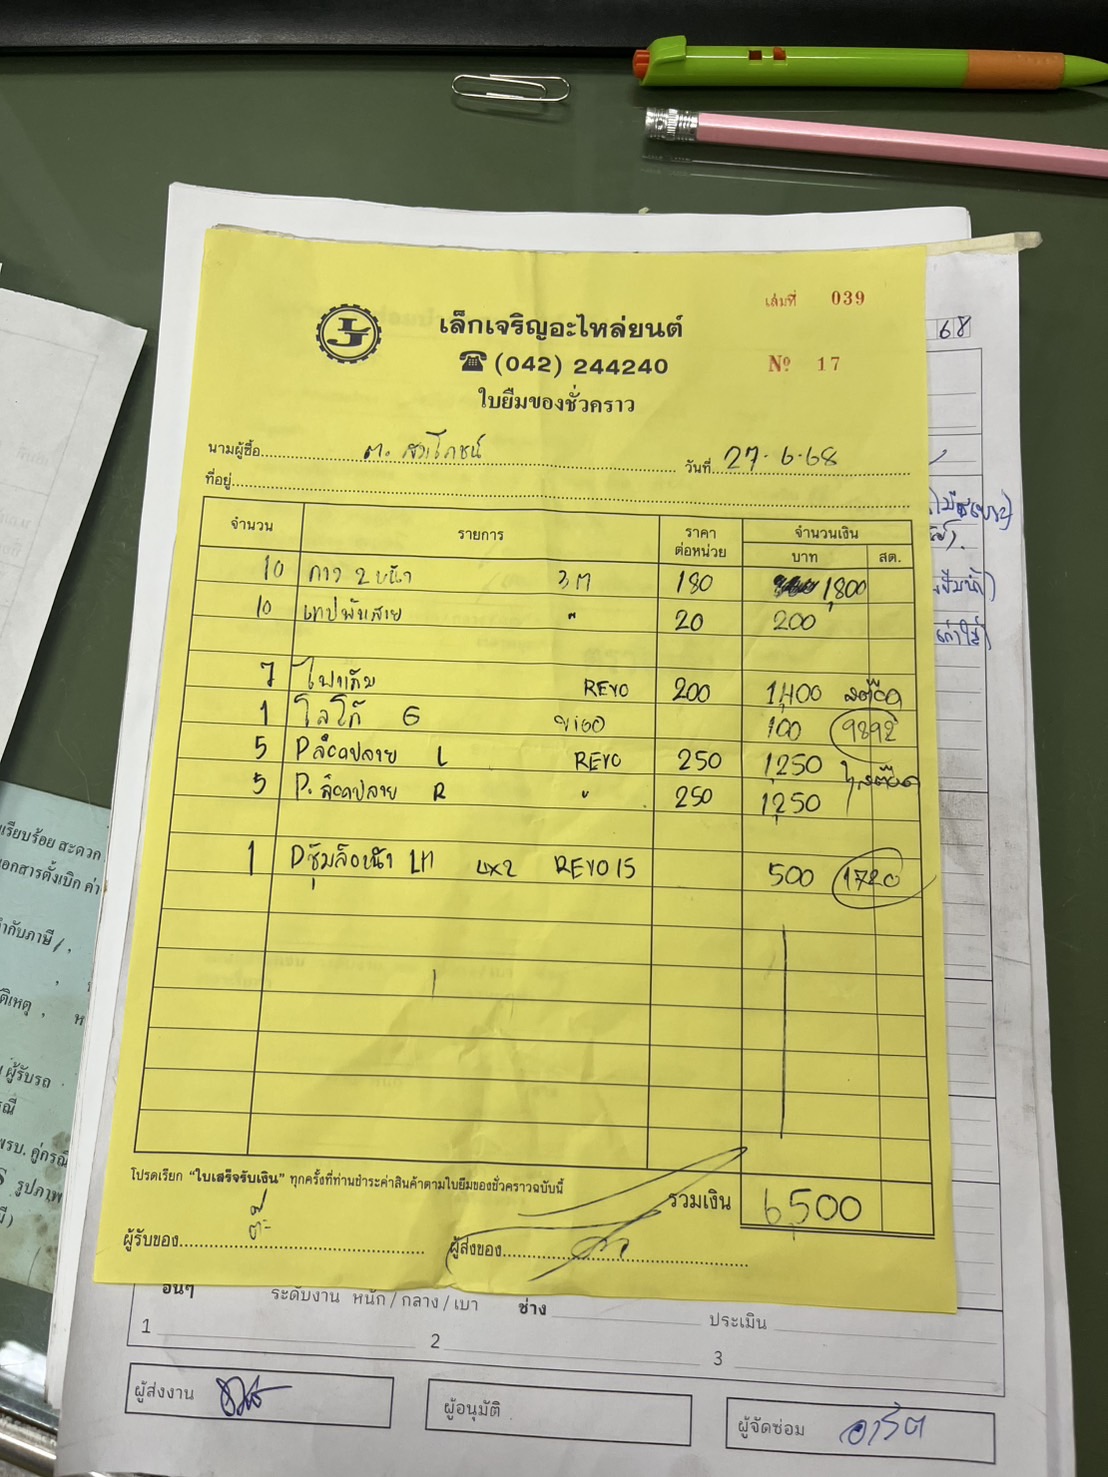 เล่มที่ 039
เล็กเจริญอะไหล่ยนต์
(042) 244240
Nº 17
ใบยืมของชั่วคราว
68
นามผู้ซื้อ ต. สหโภชน์ วันที่ 27.6.68
ที่อยู่
จำนวน รายการ ราคาต่อหน่วย จำนวนเงิน
บาท สต.
10 กาว 2 หน้า 3M 180 1,800
10 เทปพันสาย " 20 200
7 ไฟแก้ม REVO 200 1,400 สต๊อค
1 โลโก้ G VIGO 100 9892
5 P ล๊อคปลาย L REVO 250 1,250 สต๊อค
5 P. ล๊อคปลาย R " 250 1,250
1 Pซุ้มล้อหน้า LH 4x2 REVO 15 500 1720
โปรดเรียก "ใบเสร็จรับเงิน" ทุกครั้งที่ท่านชำระค่าสินค้าตามใบยืมของชั่วคราวฉบับนี้
รวมเงิน 6,500
ผู้รับของ ต๊ะ ผู้ส่งของ
เรียบร้อย สะดวก
อกสารตั้งเบิก ค่า
ำกับภาษี
ติเหตุ
ผู้รับรถ
รณี
พรบ. คู่กรณี
รูปภาพ
อื่นๆ ระดับงาน หนัก / กลาง / เบา ช่าง ประเมิน
1 2 3
ผู้ส่งงาน ผู้อนุมัติ ผู้จัดซ่อม อาร์ต